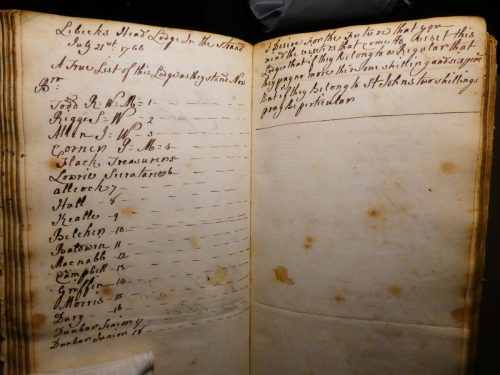 Lebecks Head Lodge In the Strand
July 21st 1760
A True List of this Lodge as they Stand Now
Bro:
Todd R=W=M= 1
Rigge S=W - 2
Allen J=W - 3
Corner P=M= 4
Flack Treasurer 5
Lowrie Secratarie 6
allcock 7
Hall - 8
Kealle - 9
Belchin - 10
Baldwin - 11
Macnabb - 12
Campbell - 13
Griffin - 14
Morris - 15
Dury - 16
Dunbar Sinior 17
Dunbar Junior 18
I Desire For the future that you
mind the Visiters that come to Visit this
Lodge that if they belong to a Regular that
they pay no more then one shilling and sixpince
But if they belong to St Johns two shillings
pray be pirticular